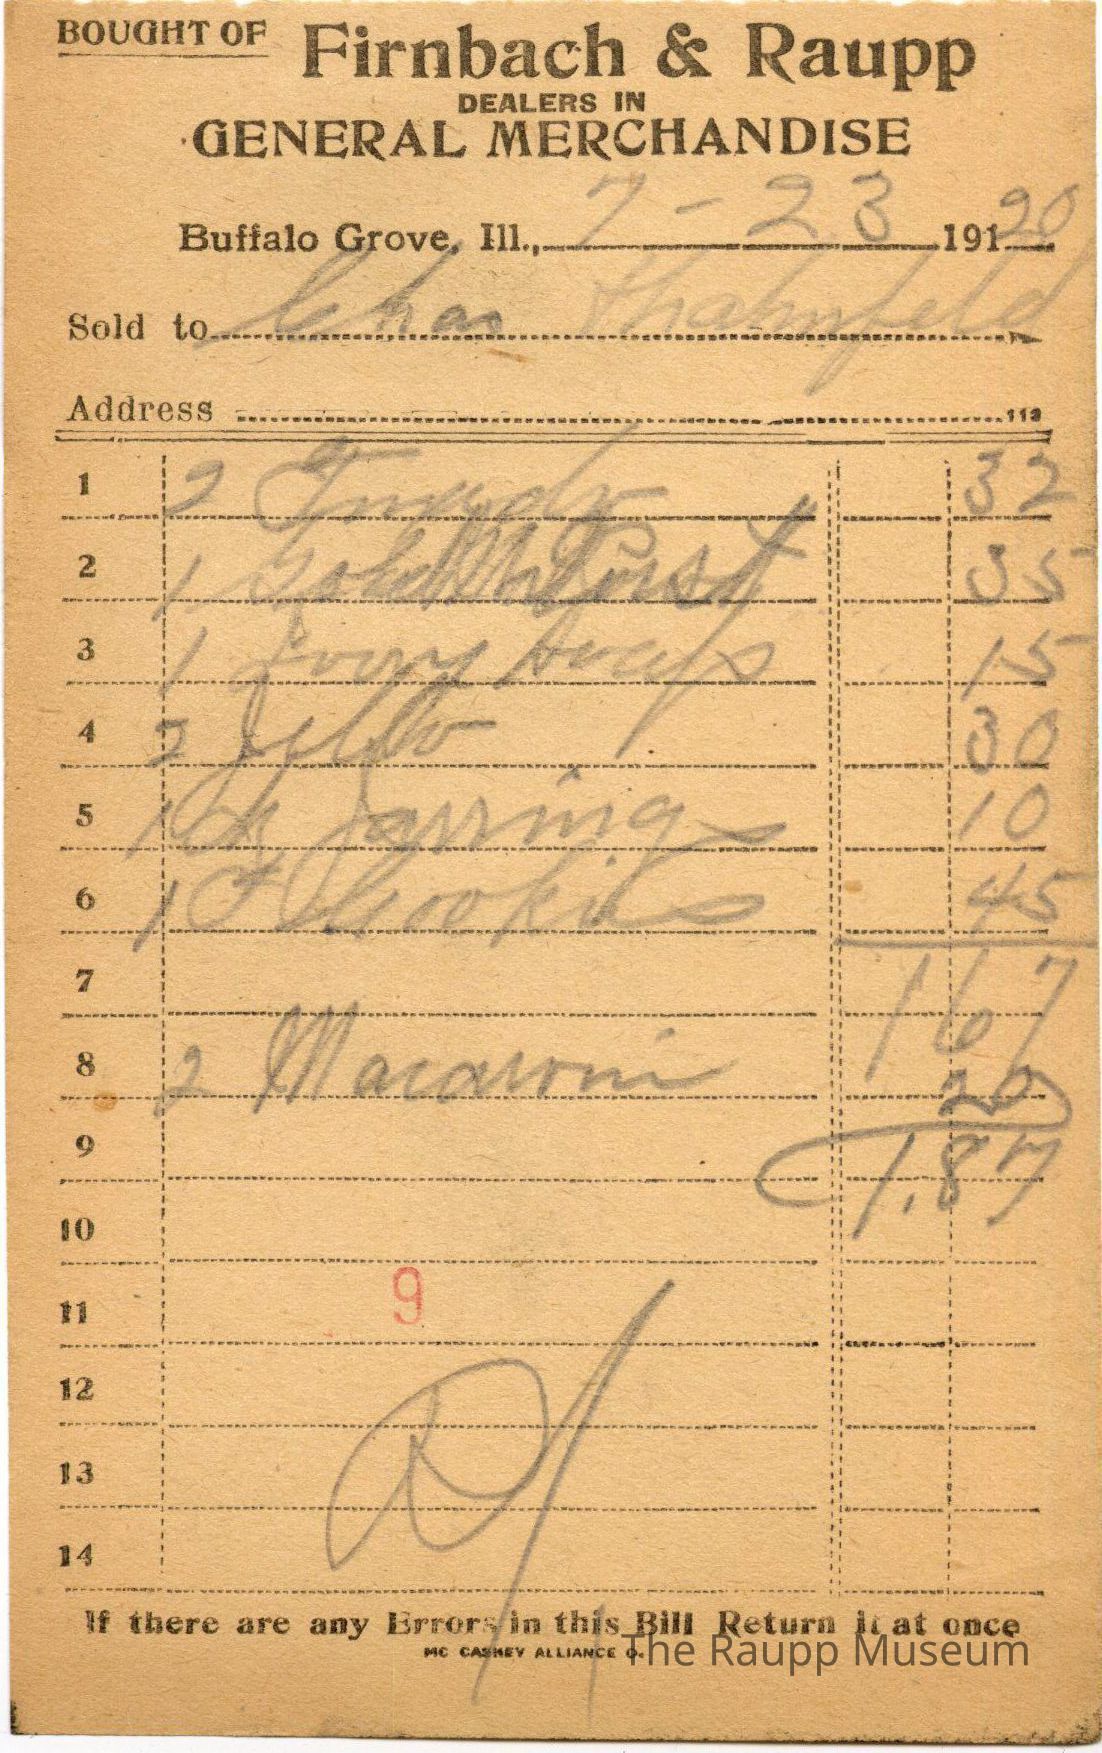 BOUGHT OF Firnbach & Raupp
DEALERS IN
GENERAL MERCHANDISE
Buffalo Grove, Ill., 7-23 191 20
Sold to Chas
Address 113
1 2 32
2 1 Gold Dust 35
3 1 Ivory Soaps 15
4 2 Jello 30
5 1 10
6 1 Cookies 45
7 167
8 2 Macaroni 20
9 1.87
10
11 9
12
13
14
If there are any Errors in this Bill Return it at once
MC CASKEY ALLIANCE O.
The Raupp Museum